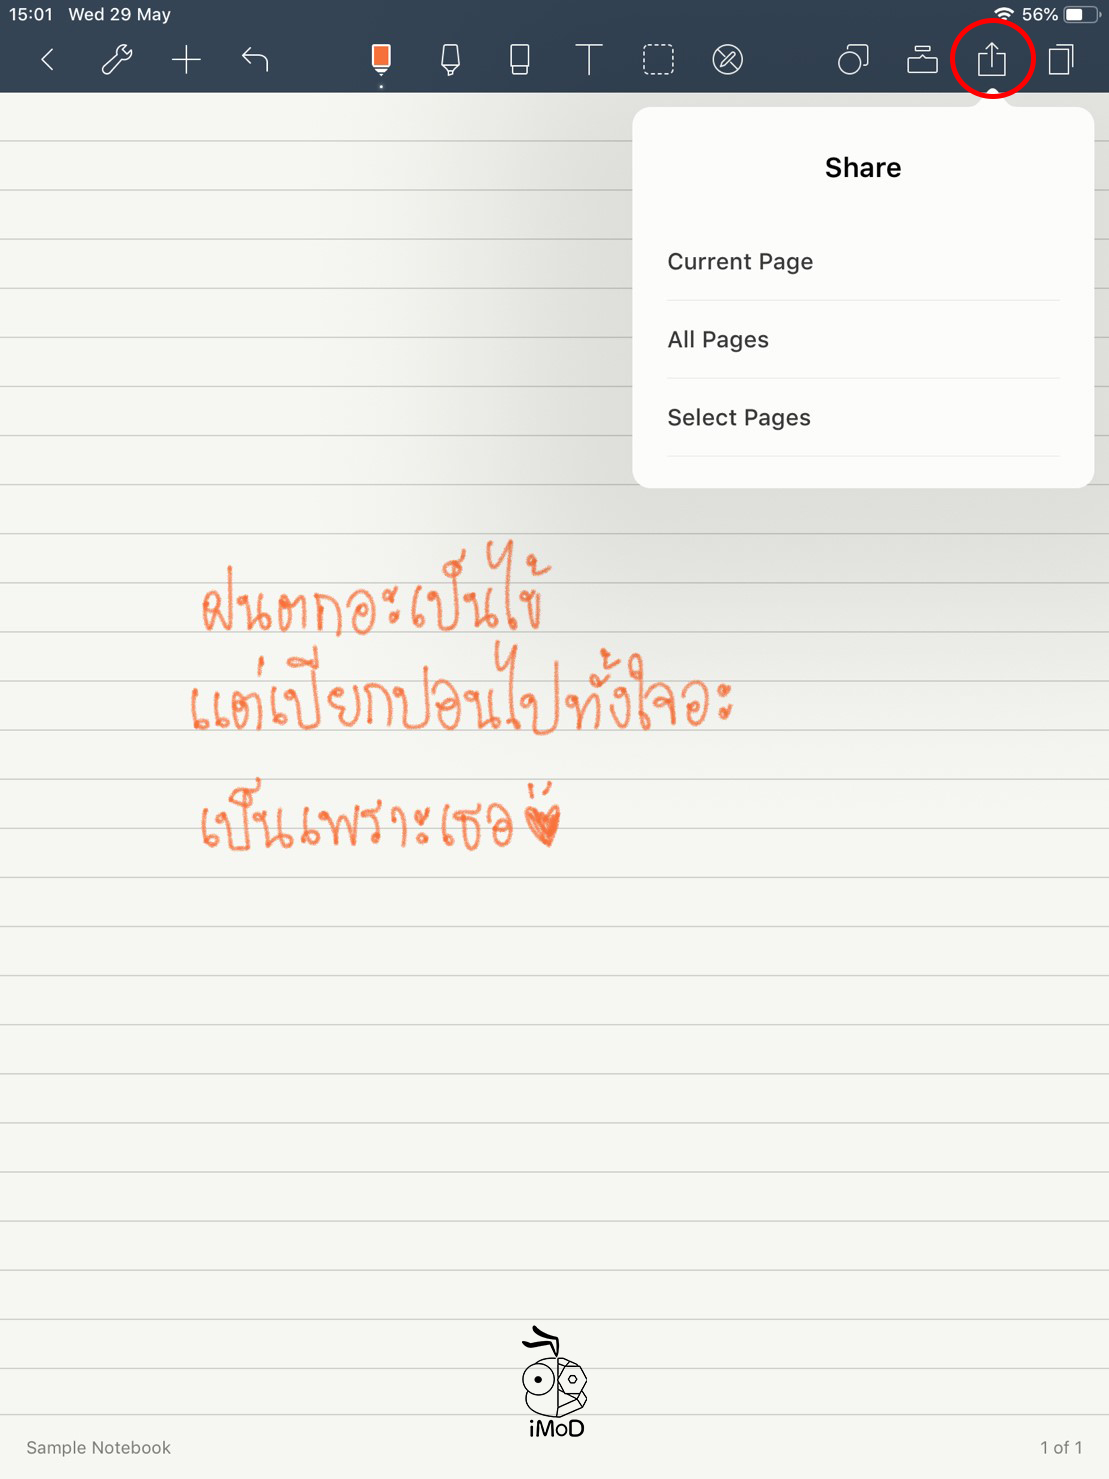 15:01 Wed 29 May 56%
Share
Current Page
All Pages
Select Pages
ฝนตกอะเป็นไข้
แต่เปียกปอนไปทั้งใจอะ
เป็นเพราะเธอ
iMoD
Sample Notebook 1 of 1